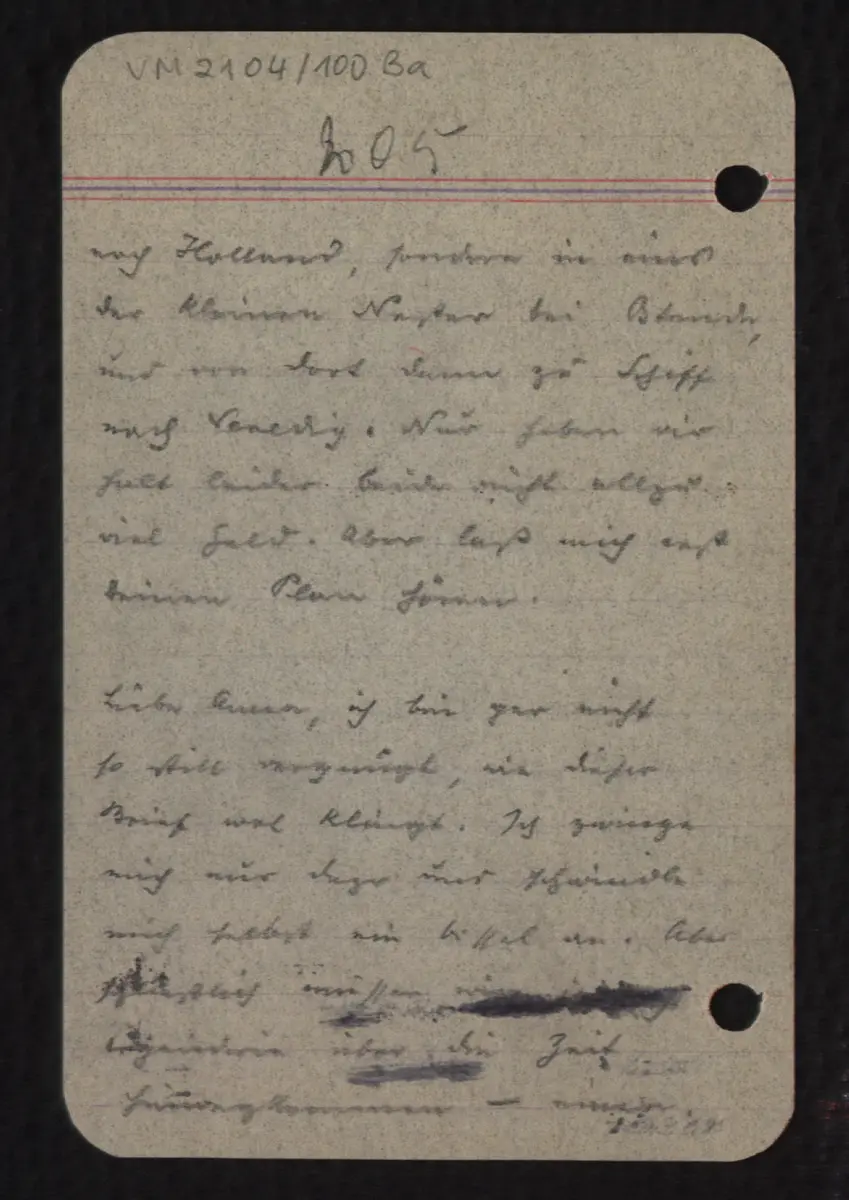 VM 2104/100 Ba
nach Holland, sondern in eins
der kleinen Nester bei
und von dort dann zu Schiff
nach Venedig. Nur haben wir
halt leider beide nicht allzu
viel Geld. Aber laß mich erst
deinen Plan hören.
Liebe Anna, ich bin gar nicht
so still vergnügt, wie dieser
Brief wol klingt. Ich zwinge
mich nur dazu und schwindle
mich selbst ein bissel an. Aber
schließlich müssen wir
irgendwie über die Zeit
hinwegkommen —